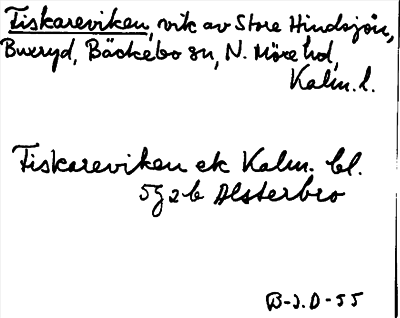 Fiskareviken, vik av Store Hindsjön,
Buxryd, Bäckebo sn, N. Möre hd,
Kalm. l.
Fiskareviken ek Kalm. bl.
5g2b Alsterbro
B-J.D-55